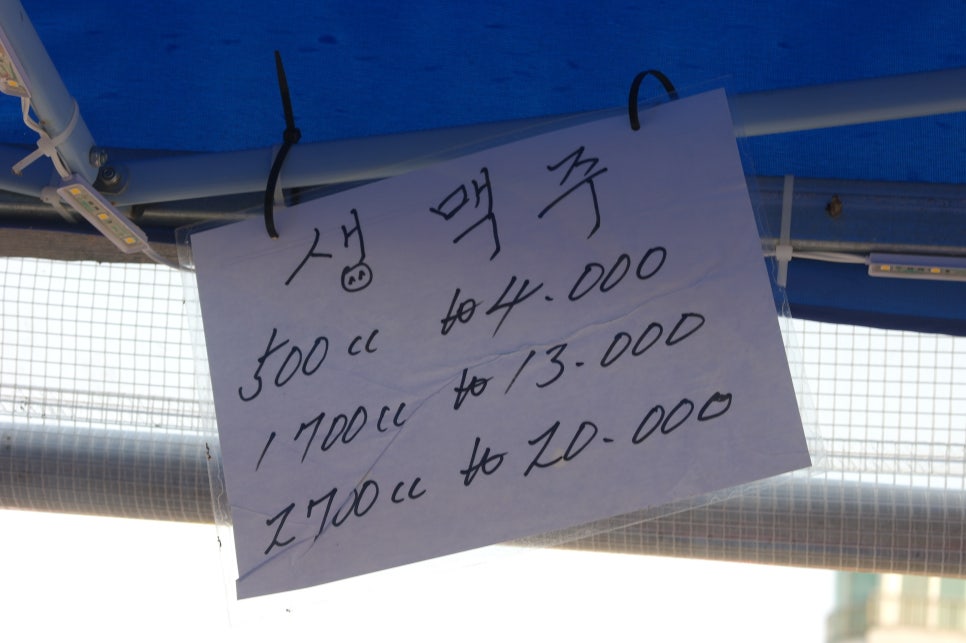 생맥주
500cc ₩4.000
1700cc ₩13.000
2700cc ₩20.000